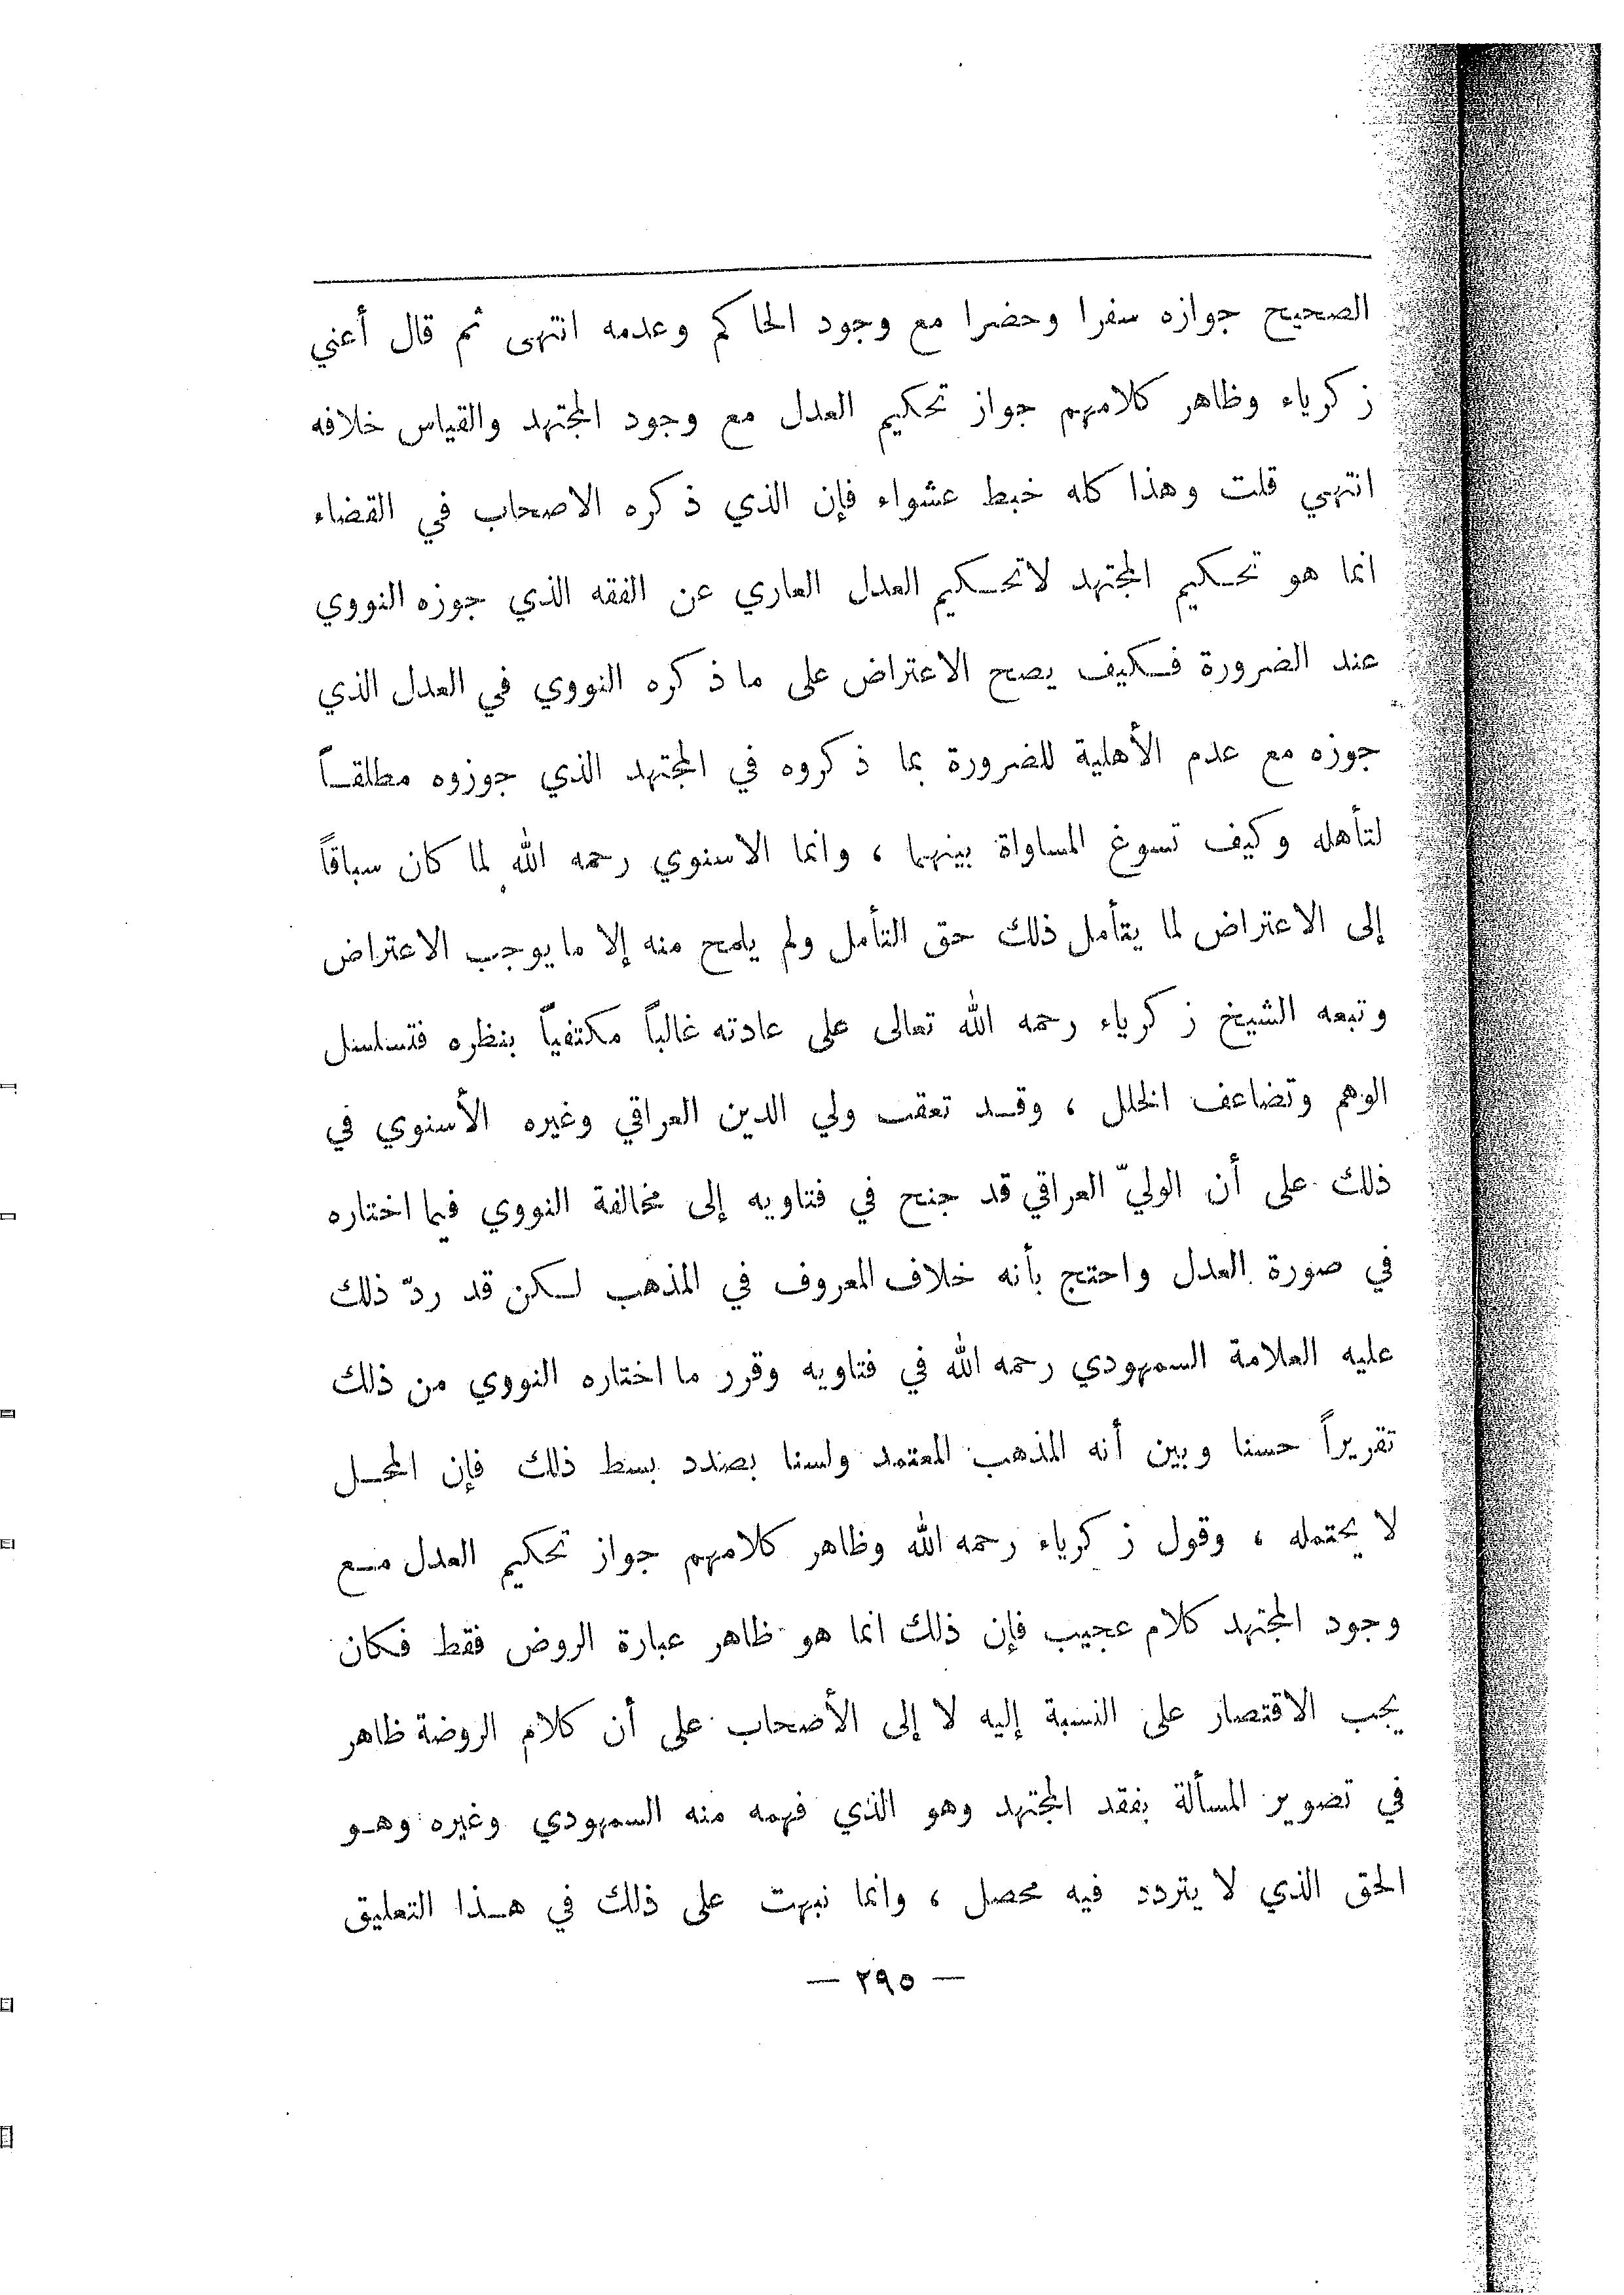 الصحيح جوازه سفرا وحضرا مع وجود الحاكم وعدمه انتهى ثم قال أعني
زكرياء وظاهر كلامهم جواز تحكيم العدل مع وجود المجتهد والقياس خلافه
انتهى قلت وهذا كله خبط عشواء فإن الذي ذكره الاصحاب في القضاء
انما هو تحكيم المجتهد لا تحكيم العدل العاري عن الفقه الذي جوزه النووي
عند الضرورة فكيف يصح الاعتراض على ما ذكره النووي في العدل الذي
جوزه مع عدم الأهلية للضرورة بما ذكروه في المجتهد الذي جوزوه مطلقاً
لتأهله وكيف تسوغ المساواة بينهما ، وانما الاسنوي رحمه الله لما كان سباقاً
إلى الاعتراض لما يتأمل ذلك حق التأمل ولم يلمح منه إلا ما يوجب الاعتراض
وتبعه الشيخ زكرياء رحمه الله تعالى على عادته غالباً مكتفياً بنظره فتسلسل
الوهم وتضاعف الخلل ، وقد تعقب ولي الدين العراقي وغيره الأسنوي في
ذلك على أن الوليّ العراقي قد جنح في فتاويه إلى مخالفة النووي فيما اختاره
في صورة العدل واحتج بأنه خلاف المعروف في المذهب لكن قد ردّ ذلك
عليه العلامة السمهودي رحمه الله في فتاويه وقرر ما اختاره النووي من ذلك
تقريراً حسنا وبين أنه المذهب المعتمد ولسنا بصدد بسط ذلك فإن المحل
لا يحتمله ، وقول زكرياء رحمه الله وظاهر كلامهم جواز تحكيم العدل مع
وجود المجتهد كلام عجيب فإن ذلك انما هو ظاهر عبارة الروض فقط فكان
يجب الاقتصار على النسبة إليه لا إلى الأضحاب على أن كلام الروضة ظاهر
في تضوير المسألة بفقد المجتهد وهو الذي فهمه منه السمهودي وغيره وهو
الحق الذي لا يتردد فيه محصل ، وانما نبهت على ذلك في هذا التعليق
— ٢٩٥ —